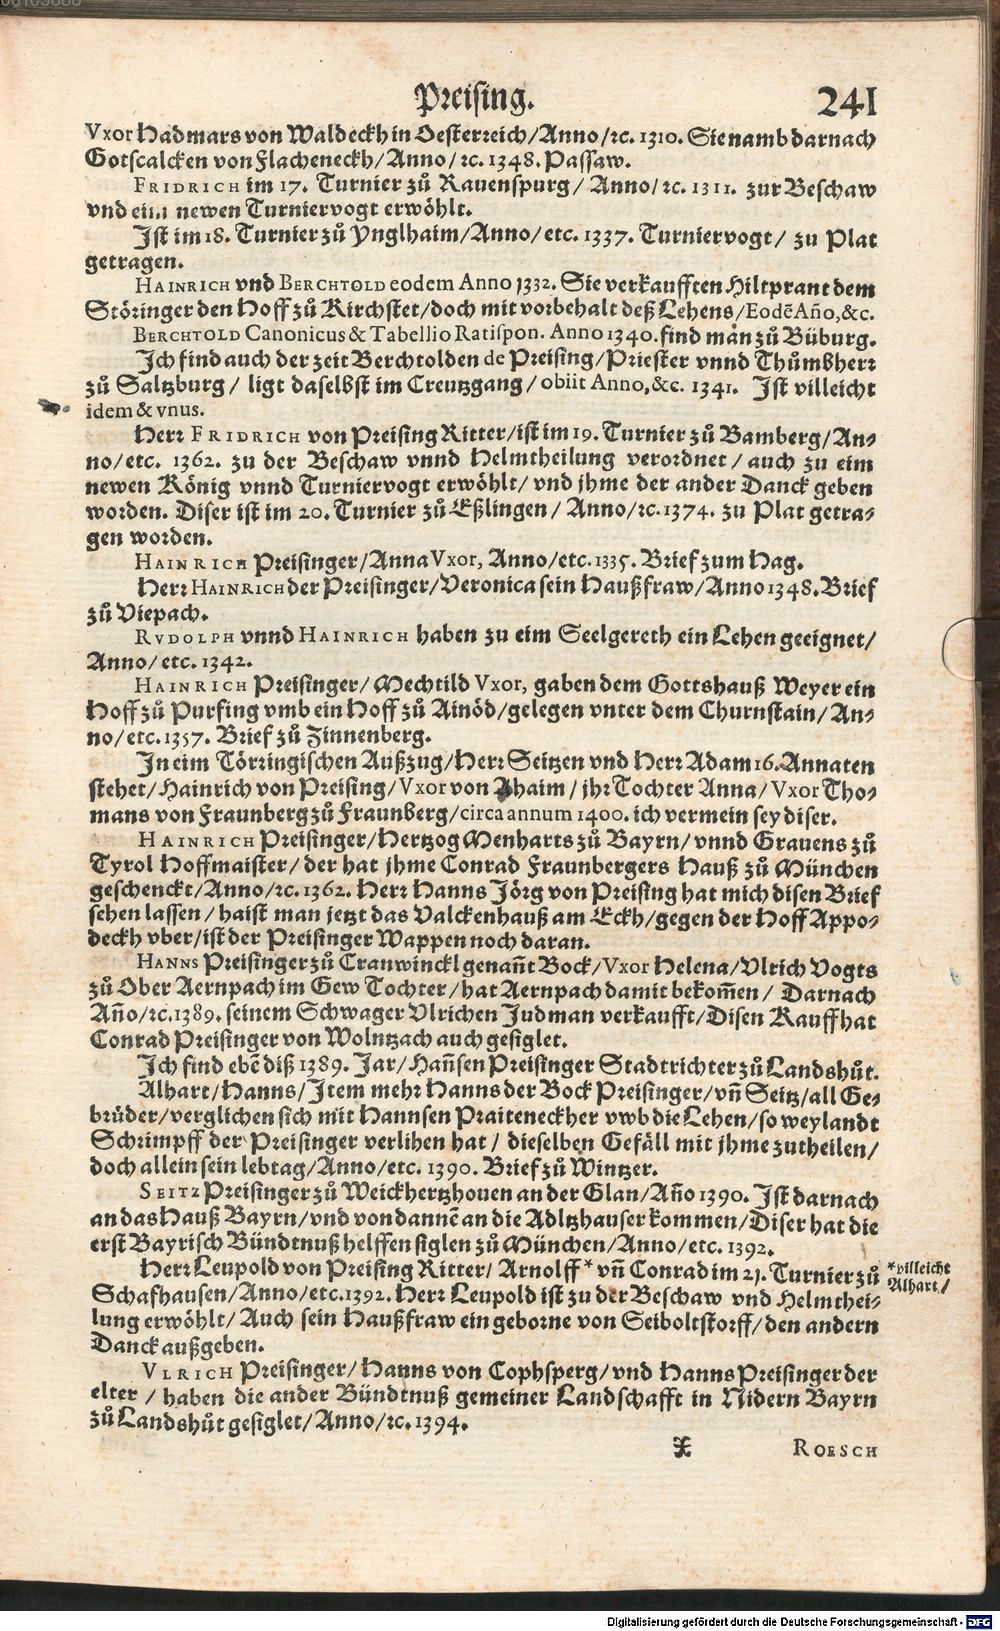 Preising. 241
Vxor Hadmars von Waldeckh in Oesterreich/Anno/ꝛc. 1310. Sie namb darnach
Gotscalcken von Flacheneckh/Anno/ꝛc. 1348. Passaw.
FRIDRICH im 17. Turnier zů Rauenspurg/ Anno/ꝛc. 1311. zur Beschaw
vnd eim newen Turniervogt erwöhlt.
Ist im 18. Turnier zů Ynglhaim/Anno/etc. 1337. Turniervogt/ zu Plat
getragen.
HAINRICH vnd BERCHTOLD eodem Anno 1332. Sie verkaufften Hiltprant dem
Störinger den Hoff zů Kirchstet/doch mit vorbehalt deß Lehens/Eodē Año,&c.
BERCHTOLD Canonicus & Tabellio Ratispon. Anno 1340. find man zů Büburg.
Ich find auch der zeit Berchtolden de Preising/Priester vnnd Thůmbherr
zů Saltzburg/ ligt daselbst im Creutzgang/ obiit Anno,&c. 1341. Ist villeicht
idem & vnus.
Herr FRIDRICH von Preising Ritter/ist im 19. Turnier zů Bamberg/An-
no/etc. 1362. zu der Beschaw vnnd Helmtheilung verordnet/ auch zu eim
newen König vnnd Turniervogt erwöhlt/ vnd jhme der ander Danck geben
worden. Diser ist im 20. Turnier zů Eßlingen/ Anno/ꝛc. 1374. zu Plat getra-
gen worden.
HAINRICH Preisinger/Anna Vxor, Anno/etc. 1335. Brief zum Hag.
Herr HAINRICH der Preisinger/Veronica sein Haußfraw/Anno 1348. Brief
zů Viepach.
RVDOLPH vnnd HAINRICH haben zu eim Seelgereth ein Lehen geeignet/
Anno/etc. 1342.
HAINRICH Preisinger/ Mechtild Vxor, gaben dem Gottshauß Weyer ein
Hoff zů Purfing vmb ein Hoff zů Ainöd/gelegen vnter dem Churnstain/An-
no/etc. 1357. Brief zů Zinnenberg.
In eim Törringischen Außzug/Herr Seitzen vnd Herr Adam 16. Annaten
stehet/Hainrich von Preising/Vxor von Ahaim/jhr Tochter Anna/Vxor Tho-
mans von Fraunberg zů Fraunberg/circa annum 1400. ich vermein sey diser.
HAINRICH Preisinger/Hertzog Menharts zů Bayrn/vnnd Grauens zů
Tyrol Hoffmaister/der hat jhme Conrad Fraunbergers Hauß zů München
geschenckt/Anno/ꝛc. 1362. Herr Hanns Jörg von Preising hat mich disen Brief
sehen lassen/haist man jetzt das Valckenhauß am Eckh/gegen der Hoff Appo-
deckh vber/ist der Preisinger Wappen noch daran.
HANNS Preisinger zů Cranwinckl genañt Bock/Vxor Helena/Vlrich Vogts
zů Ober Aernpach im Gew Tochter/hat Aernpach damit bekom̄en/ Darnach
Año/ꝛc. 1389. seinem Schwager Vlrichen Judman verkaufft/Disen Kauff hat
Conrad Preisinger von Wolntzach auch gesiglet.
Ich find ebē diß 1389. Jar/Hañsen Preisinger Stadtrichter zů Landshůt.
Alhart/Hanns/Item mehr Hanns der Bock Preisinger/vñ Seitz/all Ge-
brüder/verglichen sich mit Hannsen Praiteneckher vwb die Lehen/so weylandt
Schrimpff der Preisinger verlihen hat/ dieselben Gefäll mit jhme zutheilen/
doch allein sein lebtag/Anno/etc. 1390. Brief zů Wintzer.
SEITZ Preisinger zů Weickhertzhouen an der Glan/Año 1390. Ist darnach
an das Hauß Bayrn/vnd von dannē an die Adltzhauser kommen/Diser hat die
erst Bayrisch Bündtnuß helffen siglen zů München/Anno/etc. 1392.
Herr Leupold von Preising Ritter/ Arnolff * vñ Conrad im 21. Turnier zů
*villeicht
Alhart/
Schafhausen/Anno/etc. 1392. Herr Leupold ist zu der Beschaw vnd Helmthei-
lung erwöhlt/ Auch sein Haußfraw ein geborne von Seiboltstorff/den andern
Danck außgeben.
VLRICH Preisinger/Hanns von Cophsperg/vnd Hanns Preisinger der
elter/ haben die ander Bündtnuß gemeiner Landschafft in Nidern Bayrn
zů Landshůt gesiglet/Anno/ꝛc. 1394.
X ROESCH
Digitalisierung gefördert durch die Deutsche Forschungsgemeinschaft - DFG